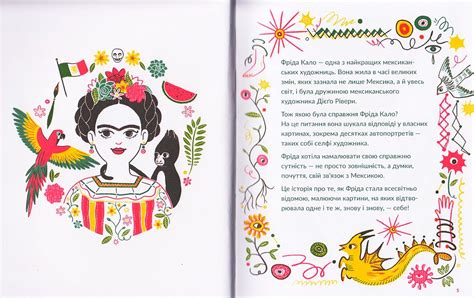 Фріда Кало — одна з найкращих мексикан-
ських художниць. Вона жила в часі великих
змін, яких зазнала не лише Мексика, а й увесь
світ, і була дружиною мексиканського
художника Дієґо Рівери.
Тож якою була справжня Фріда Кало?
На це питання вона шукала відповіді у власних
картинах, зокрема десятках автопортретів —
таких собі селфі художника.
Фріда хотіла намалювати свою справжню
сутність — не просто зовнішність, а думки,
почуття, свій зв'язок з Мексикою.
Це історія про те, як Фріда стала всесвітньо
відомою, малюючи картини, на яких відтво-
рювала одне і те ж, знову і знову, — себе!